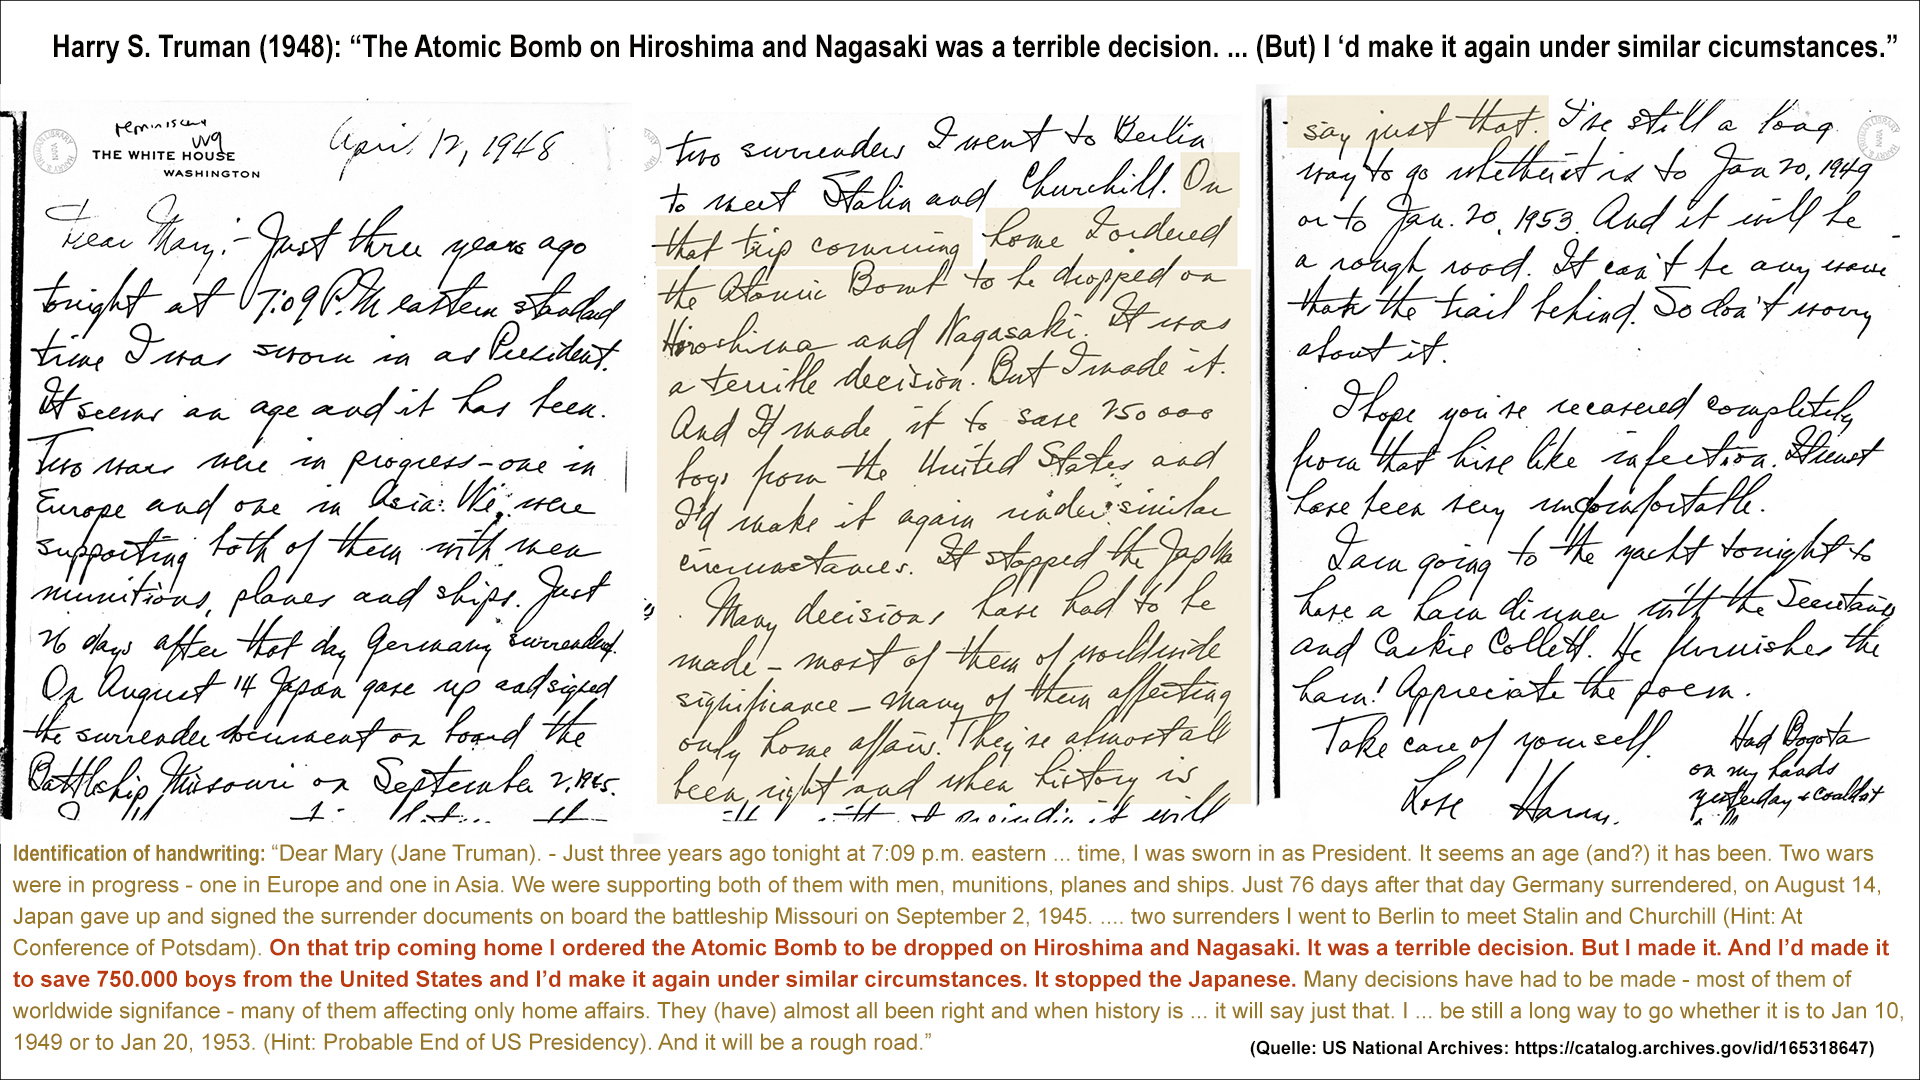 Harry S. Truman (1948): “The Atomic Bomb on Hiroshima and Nagasaki was a terrible decision. ... (But) I ‘d make it again under similar cicumstances.”
THE WHITE HOUSE
WASHINGTON
April 12, 1948
Dear Mary:- Just three years ago
tonight at 7:09 P.M eastern standard
time I was sworn in as President.
It seems an age and it has been.
Two wars were in progress - one in
Europe and one in Asia. We were
supporting both of them with men
munitions, planes and ships. Just
26 days after that day Germany surrendered.
On August 14 Japan gave up and signed
the surrender document on board the
Battleship Missouri on September 2, 1945.
two surrenders I went to Berlin
to meet Stalin and Churchill. On
that trip comming home I ordered
the Atomic Bomb to be dropped on
Hiroshima and Nagasaki. It was
a terrible decision. But I made it.
And I made it to save 250 000
boys from the United States and
I'd make it again under similar
circumstances. It stopped the Jap
Many decisions have had to be
made - most of them of worldwide
significance - many of them affecting
only home affairs. They're almost all
been right and when history is
say just that. I've still a long
way to go whether it is to Jan 20, 1949
or to Jan. 20, 1953. And it will be
a rough road. It can't be any worse
than the trail behind. So don't worry
about it.
I hope you've recovered completely
from that hive like infection. It must
have been very uncomfortable.
I am going to the yacht tonight to
have a ham dinner with the Secretary
and Caskie Collett. He furnishes the
ham! Appreciate the poem.
Take care of yourself.
Love Harry.
Had Bogota
on my hands
yesterday &
Identification of handwriting: “Dear Mary (Jane Truman). - Just three years ago tonight at 7:09 p.m. eastern ... time, I was sworn in as President. It seems an age (and?) it has been. Two wars
were in progress - one in Europe and one in Asia. We were supporting both of them with men, munitions, planes and ships. Just 76 days after that day Germany surrendered, on August 14,
Japan gave up and signed the surrender documents on board the battleship Missouri on September 2, 1945. .... two surrenders I went to Berlin to meet Stalin and Churchill (Hint: At
Conference of Potsdam). On that trip coming home I ordered the Atomic Bomb to be dropped on Hiroshima and Nagasaki. It was a terrible decision. But I made it. And I’d made it
to save 750.000 boys from the United States and I’d make it again under similar circumstances. It stopped the Japanese. Many decisions have had to be made - most of them of
worldwide signifance - many of them affecting only home affairs. They (have) almost all been right and when history is ... it will say just that. I ... be still a long way to go whether it is to Jan 10,
1949 or to Jan 20, 1953. (Hint: Probable End of US Presidency). And it will be a rough road.”
(Quelle: US National Archives: https://catalog.archives.gov/id/165318647)